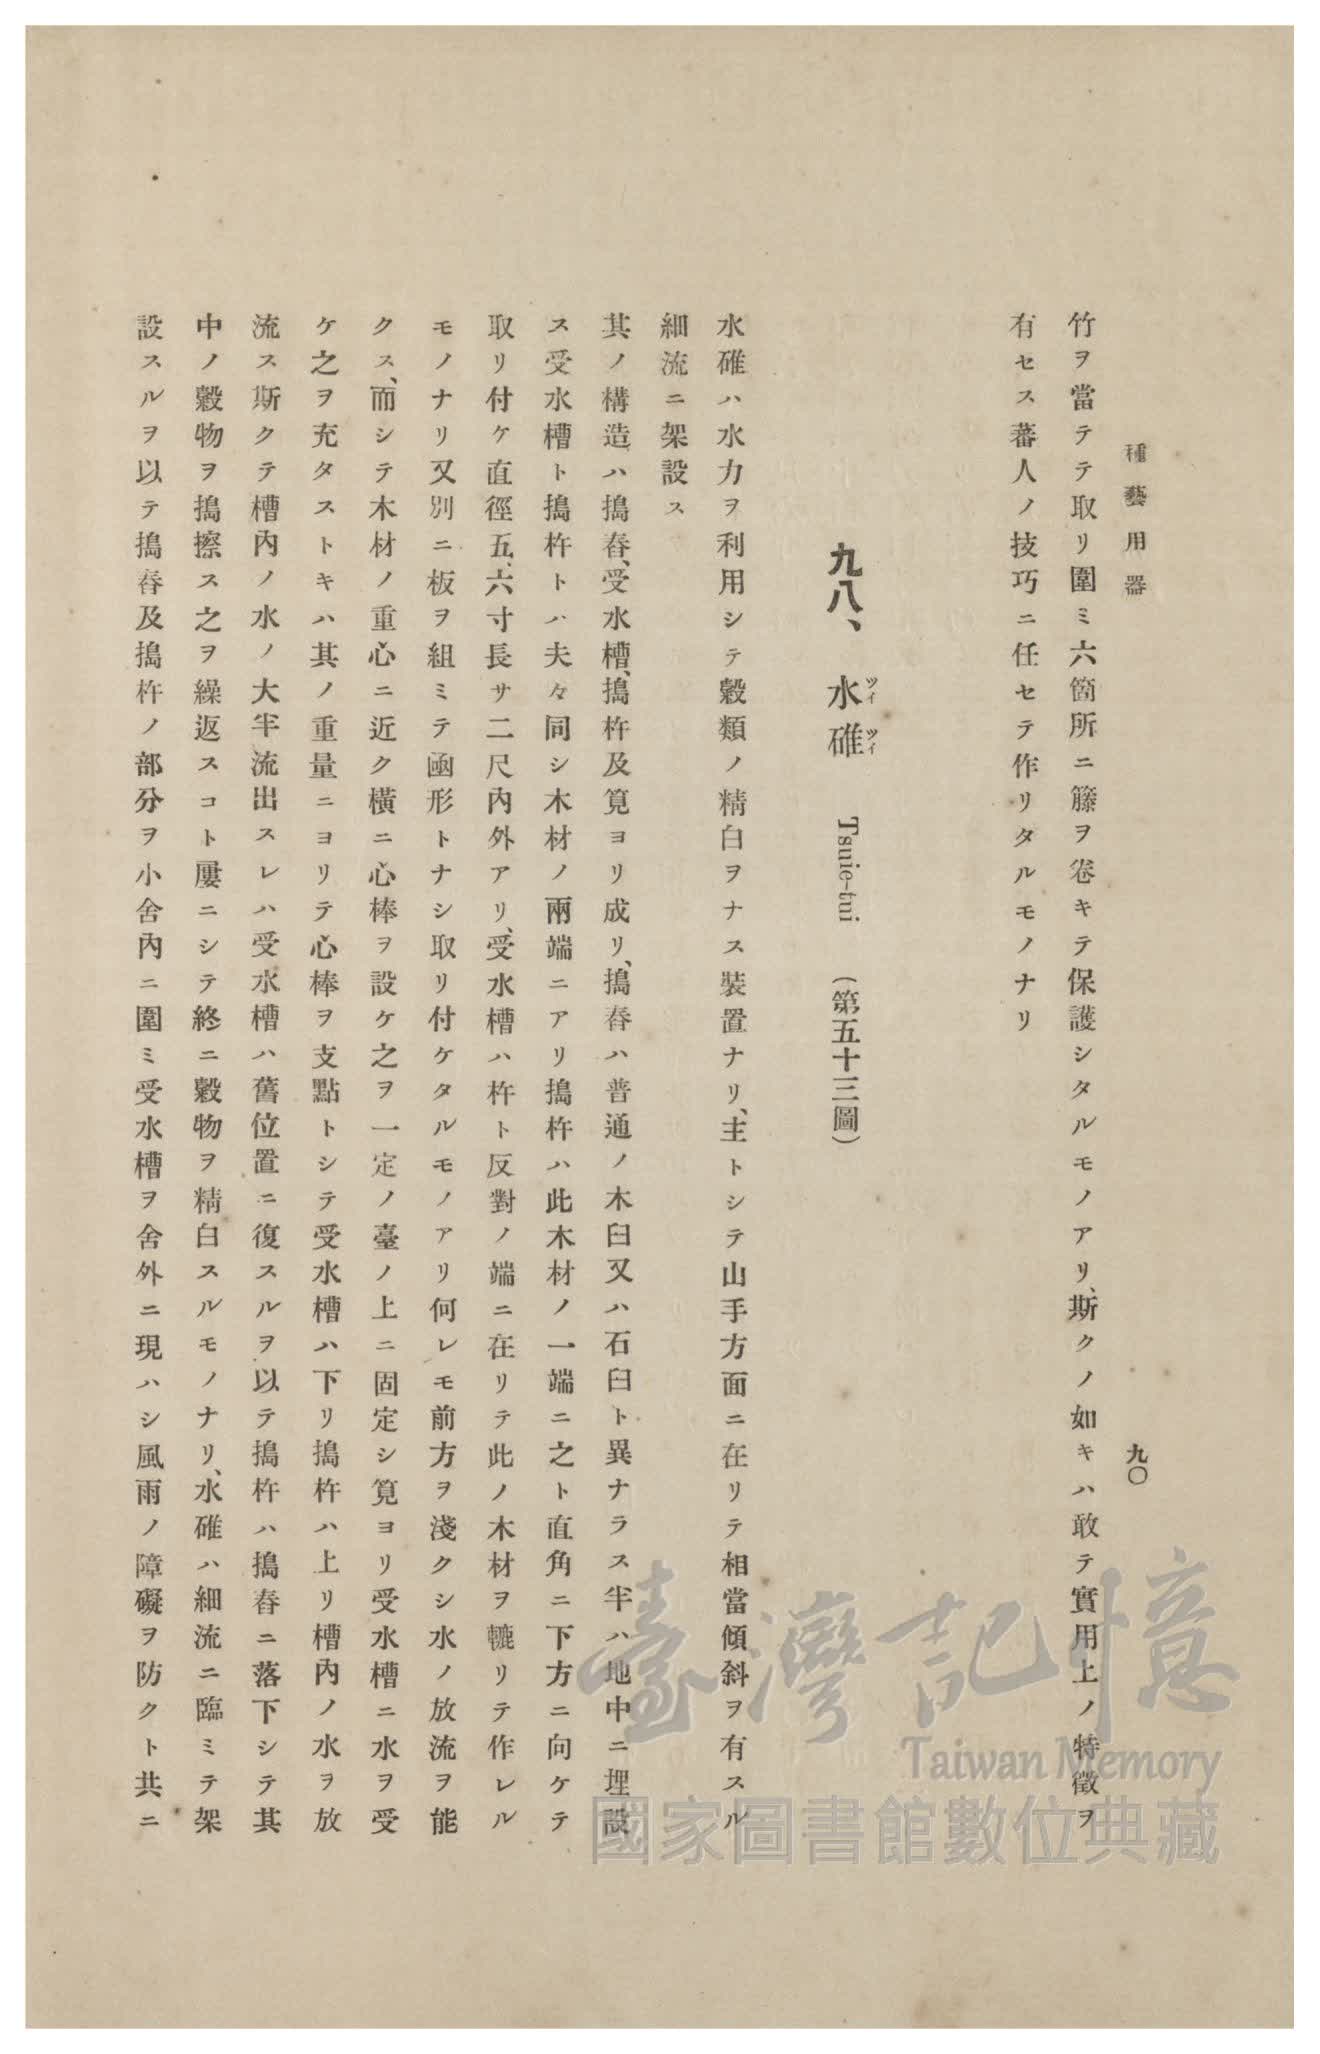 種藝用器
九〇
竹ヲ當テテ取リ圍ミ六箇所ニ籐ヲ卷キテ保護シタルモノアリ、斯クノ如キハ敢テ實用上ノ特徵ヲ
有セス蕃人ノ技巧ニ任セテ作リタルモノナリ
九八、水碓 ツイ ツイ Tsuie-tui （第五十三圖）
水碓ハ水力ヲ利用シテ穀類ノ精白ヲナス裝置ナリ、主トシテ山手方面ニ在リテ相當傾斜ヲ有スル
細流ニ架設ス
其ノ構造ハ搗舂、受水槽、搗杵及筧ヨリ成リ、搗舂ハ普通ノ木臼又ハ石臼ト異ナラス半ハ地中ニ埋設
ス受水槽ト搗杵トハ夫々同シ木材ノ兩端ニアリ搗杵ハ此木材ノ一端ニ之ト直角ニ下方ニ向ケテ
取リ付ケ直徑五、六寸長サ二尺內外アリ、受水槽ハ杵ト反對ノ端ニ在リテ此ノ木材ヲ轆リテ作レル
モノナリ又別ニ板ヲ組ミテ凾形トナシ取リ付ケタルモノアリ何レモ前方ヲ淺クシ水ノ放流ヲ能
クス、而シテ木材ノ重心ニ近ク橫ニ心棒ヲ設ケ之ヲ一定ノ臺ノ上ニ固定シ筧ヨリ受水槽ニ水ヲ受
ケ之ヲ充タストキハ其ノ重量ニヨリテ心棒ヲ支點トシテ受水槽ハ下リ搗杵ハ上リ槽內ノ水ヲ放
流ス斯クテ槽內ノ水ノ大半流出スレハ受水槽ハ舊位置ニ復スルヲ以テ搗杵ハ搗舂ニ落下シテ其
中ノ穀物ヲ搗擦ス之ヲ繰返スコト屢ニシテ終ニ穀物ヲ精白スルモノナリ、水碓ハ細流ニ臨ミテ架
設スルヲ以テ搗舂及搗杵ノ部分ヲ小舍內ニ圍ミ受水槽ヲ舍外ニ現ハシ風雨ノ障礙ヲ防クト共ニ
臺灣記憶
Taiwan Memory
國家圖書館數位典藏